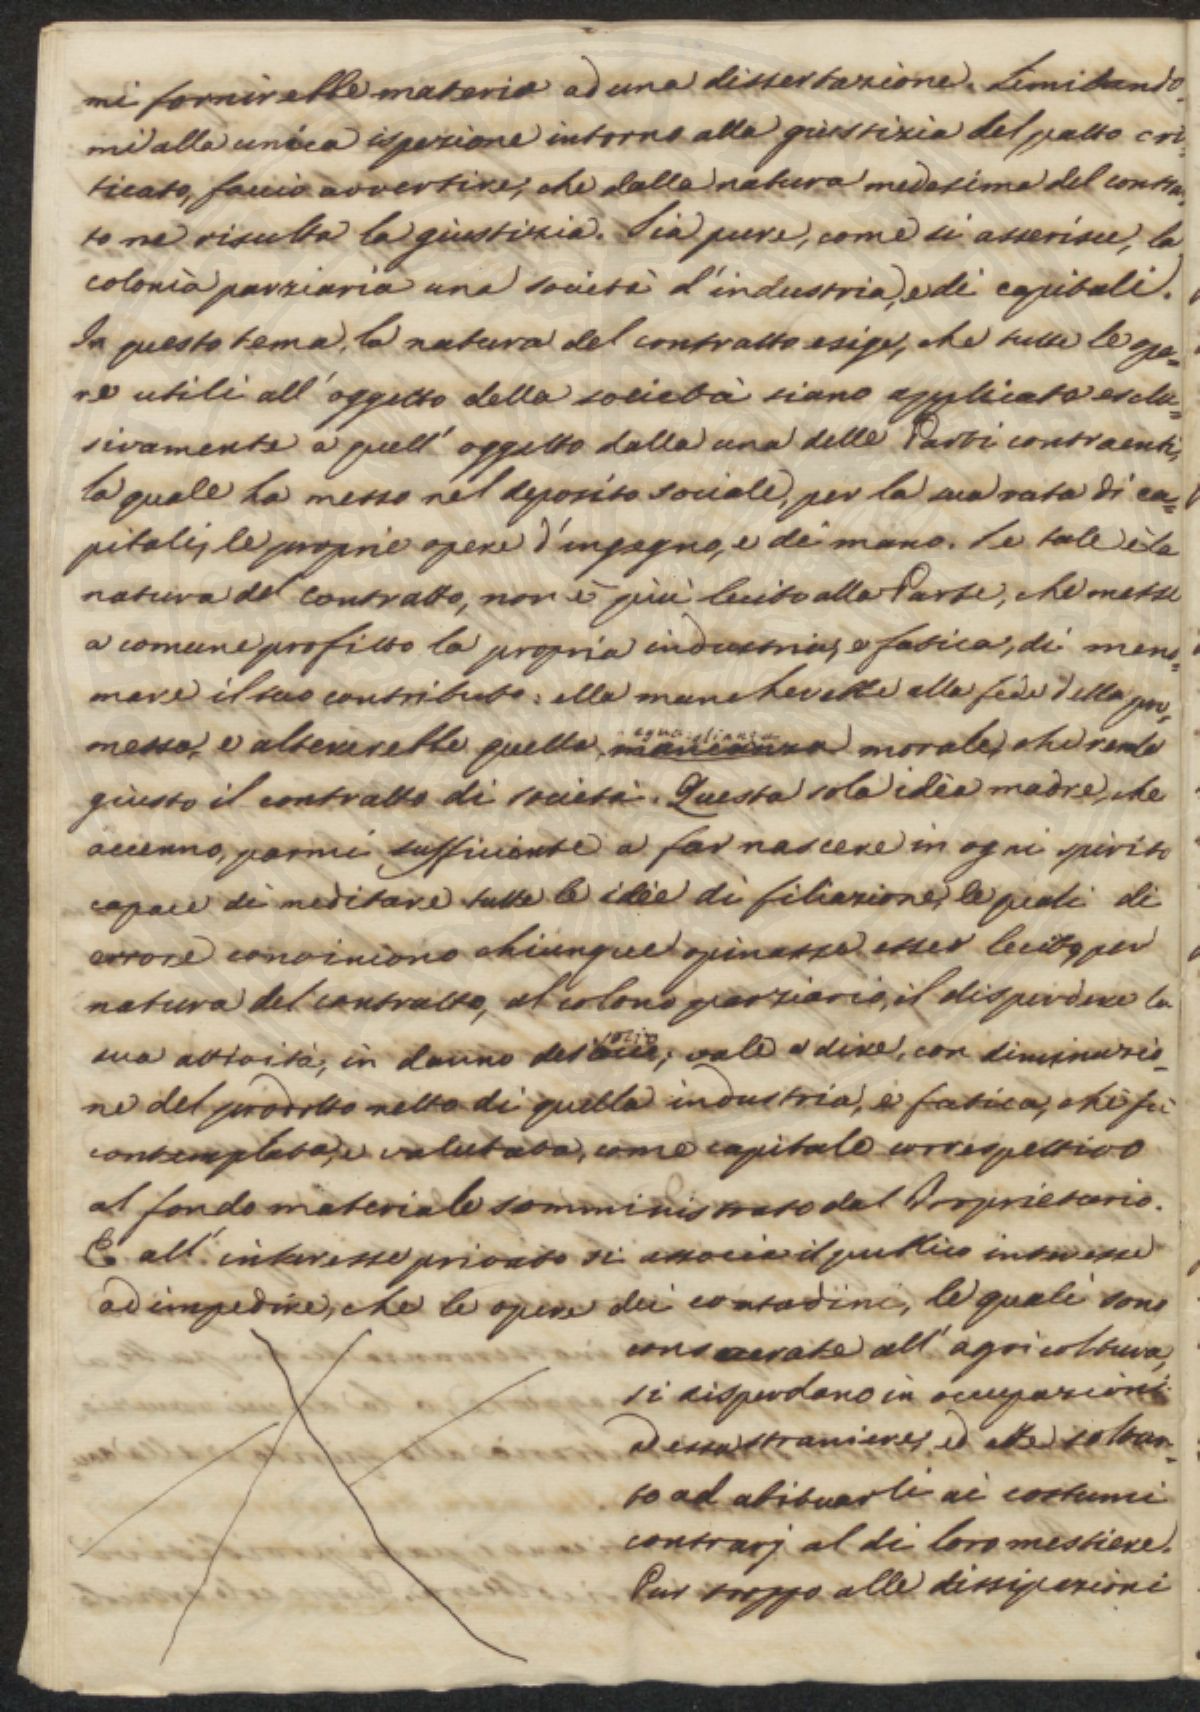 mi fornirebbe materia ad una dissertazione. Limitando-
mi alla unica ispezione intorno alla giustizia del patto cri-
ticato, faccio avvertire, che dalla natura medesima del contra-
to ne risulta la giustizia. Sia pure, come si asserisce, la
colonìa parziaria una società d'industria, e di capitali.
In questo tema, la natura del contratto esige, che tutte le ope=
re utili all'oggetto della società siano applicate esclu=
sivamente a quell'oggetto dalla una delle Parti contraenti,
la quale ha messo nel deposito sociale, per la sua rata di ca=
pitali, le proprie opere d'ingegno, e di mano. Se tale è la
natura del contratto, non è più lecito alla Parte, che messe
a comune profitto la propria industria, e fatica, di meno=
mare il suo contributo: ella mancherebbe alla fede della pro=
messa, e altererebbe quella eguaglianza morale, che rende
giusto il contratto di società. Questa sola idèa madre, che
accenno, parmi sufficiente a far nascere in ogni spirito
capace di meditare tutte le idèe di filiazione, le quali di
errore convincono chiunque opinasse esser lecito, per
natura del contratto, al colono parziario, il disperdere la
sua attività, in danno del socio; vale a dire, con diminuzio=
ne del prodotto netto di quella industria, e fatica, che fù
contemplata, e valutata, come capitale correspettivo
al fondo materiale somministrato dal Proprietario.
E all'interesse privato si associa il pubblico interesse
ad impedire, che le opere dei contadini, le quali sono
consacrate all'agricoltura,
si disperdano in occupazioni
ad essa straniere, ed atte soltan=
to ad abituarli ai costumi
contrarj al di loro mestiere.
Pur troppo alle dissipazioni